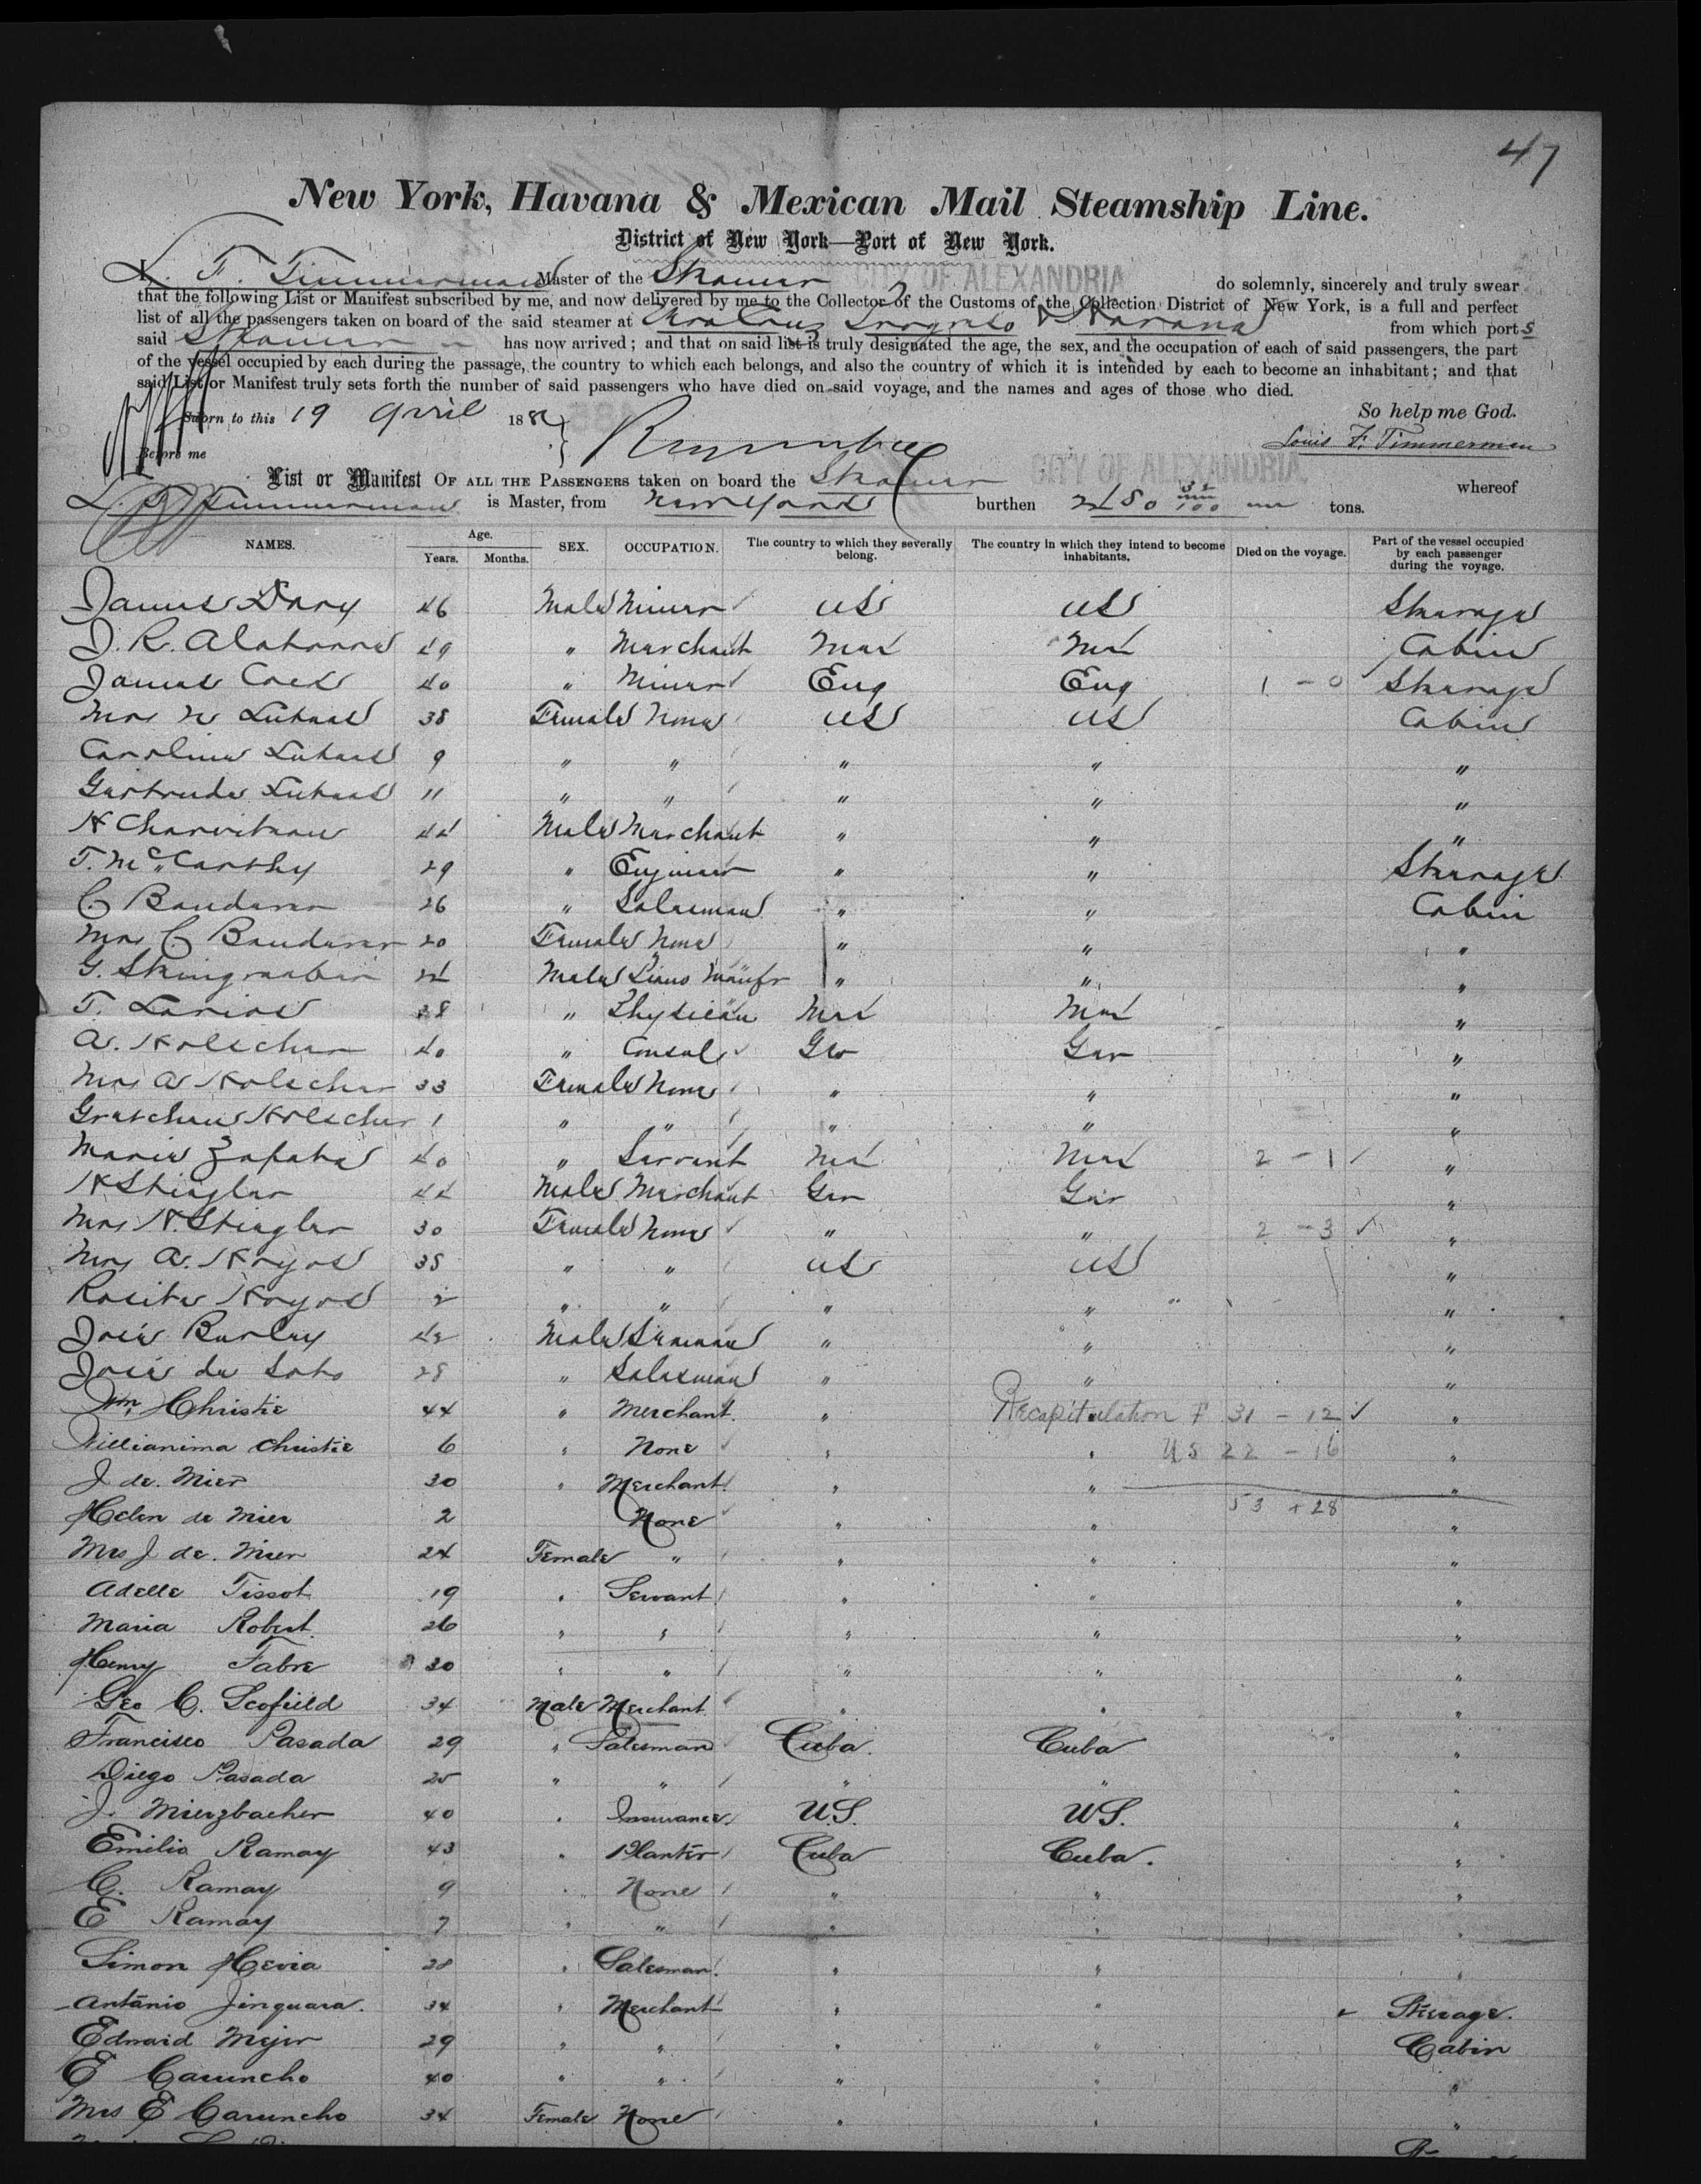 47
New York, Havana & Mexican Mail Steamship Line.
District of New York—Port of New York.
I, L. F. Timmerman Master of the Steamer CITY OF ALEXANDRIA do solemnly, sincerely and truly swear
that the following List or Manifest subscribed by me, and now delivered by me to the Collector of the Customs of the Collection District of New York, is a full and perfect
list of all the passengers taken on board of the said steamer at Vera Cruz Progreso & Havana from which ports
said Steamer has now arrived; and that on said list is truly designated the age, the sex, and the occupation of each of said passengers, the part
of the vessel occupied by each during the passage, the country to which each belongs, and also the country of which it is intended by each to become an inhabitant; and that
said List or Manifest truly sets forth the number of said passengers who have died on said voyage, and the names and ages of those who died.
Sworn to this 19 April 188 So help me God.
Before me Louis F. Timmerman
List or Manifest OF ALL THE PASSENGERS taken on board the Steamer CITY OF ALEXANDRIA whereof
L. F. Timmerman is Master, from New York burthen 2480 32/100 tons.
NAMES. Age. Years. Months. SEX. OCCUPATION. The country to which they severally belong. The country in which they intend to become inhabitants. Died on the voyage. Part of the vessel occupied by each passenger during the voyage.
James 46 Male Miner US US Steerage
J. R. 49 " Merchant Mex Mex Cabin
James 40 " Miner Eng Eng 1 - 0 Steerage
Mrs 38 Female None US US Cabin
Caroline 9 " " " " "
Gertrude 11 " " " " "
H 44 Male Merchant " " "
T. McCarthy 29 " Engineer " " Steerage
C 26 " Salesman " " Cabin
Mrs C 20 Female None " " "
G. Male Piano Manufr " " "
T. Larios 38 " Physician Mex Mex "
A. Holscher 40 " Consul Ger Ger "
Mrs A Holscher 33 Female None " " "
Gretchen Holscher 1 " " " " "
Maria Zapata 40 " Servant Mex Mex 2 - 1 "
H Stiegler 44 Male Merchant Ger Ger "
Mrs H. Stiegler 30 Female None " " 2 - 3 "
Mrs A. Hoyos 38 " " US US "
Rosita Hoyos 2 " " " " "
José Burley 42 Male Seaman " " "
José de Soto 28 " Salesman " " "
Wm Christie 44 " Merchant. " Recapitulation F 31 - 12 "
Willianima Christie 6 " None " " US 22 - 16 "
J de. Mier 30 " Merchant " " "
Helen de Mier 2 None " " 53 + 28 "
Mrs J de. Mier 24 Female " " " "
Adelle Tissot 19 " Servant " " "
Maria Robert. 26 " " " " "
Henry Fabre 30 " " " " "
Geo C. Scofield 34 Male Merchant " " "
Francisco Pasada 29 " Salesman Cuba. Cuba "
Diego Pasada 25 " " " " "
J. Mierzbacher 40 " Insurance U.S. U.S. "
Emilio Ramay 43 " Planter Cuba Cuba. "
C. Ramay 9 " None " " "
E Ramay 7 " " " " "
Simon Hevia 28 " Salesman. " " "
Antonio Jinquara. 34 " Merchant " " Steerage.
Edward Mejer 29 " " " " Cabin
E Caruncho 40 " " " " "
Mrs E Caruncho 34 Female None " " "